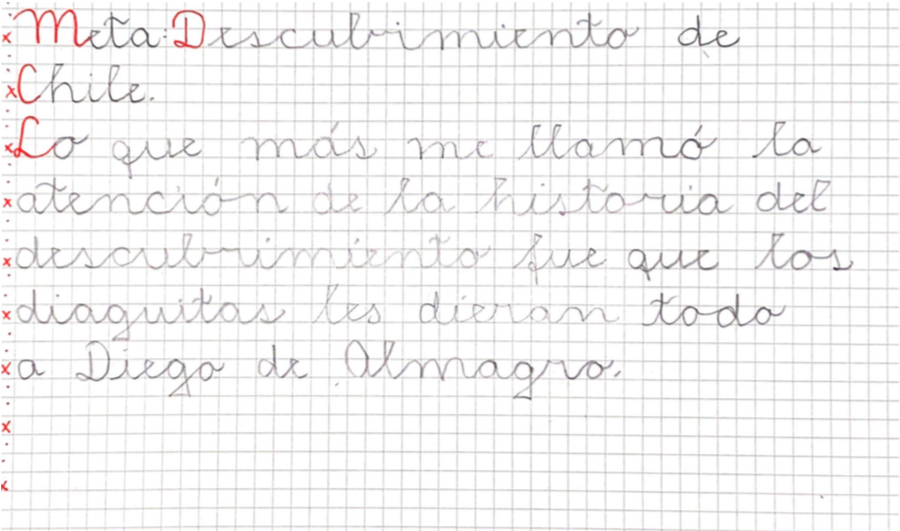 Meta: Descubrimiento de
Chile.
Lo que más me llamó la
atención de la historia del
descubrimiento fue que los
diaguitas les dieran todo
a Diego de Almagro.